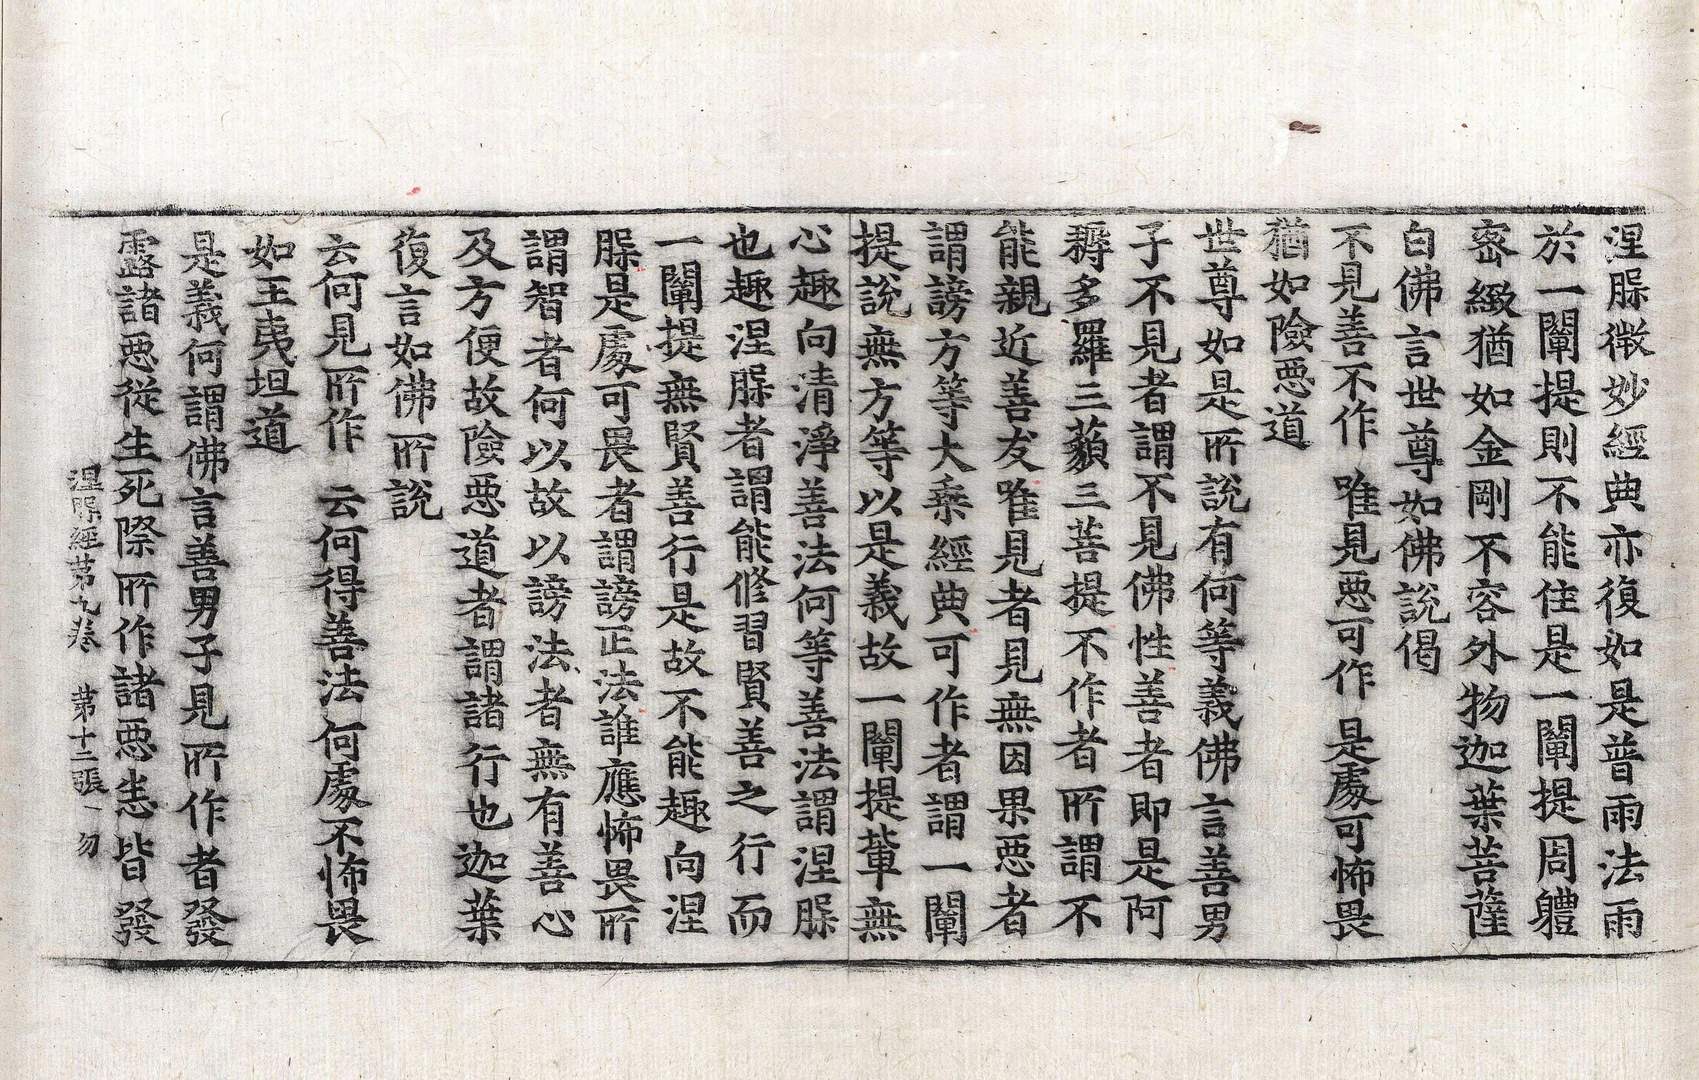 涅槃微妙經典亦復如是普雨法雨
於一闡提則不能住是一闡提周體
密緻猶如金剛不容外物迦葉菩薩
白佛言世尊如佛說偈
不見善不作 唯見惡可作 是處可怖畏
猶如險惡道
世尊如是所說有何等義佛言善男
子不見者謂不見佛性善者即是阿
耨多羅三藐三菩提不作者所謂不
能親近善友唯見者見無因果惡者
謂謗方等大乘經典可作者謂一闡
提說無方等以是義故一闡提輩無
心趣向清淨善法何等善法謂涅槃
也趣涅槃者謂能修習賢善之行而
一闡提無賢善行是故不能趣向涅
槃是處可畏者謂謗正法誰應怖畏所
謂智者何以故以謗法者無有善心
及方便故險惡道者謂諸行也迦葉
復言如佛所說
云何見所作 云何得善法 何處不怖畏
如王夷坦道
是義何謂佛言善男子見所作者發
露諸惡從生死際所作諸惡悉皆發
涅槃經第九卷 第十二張 勿